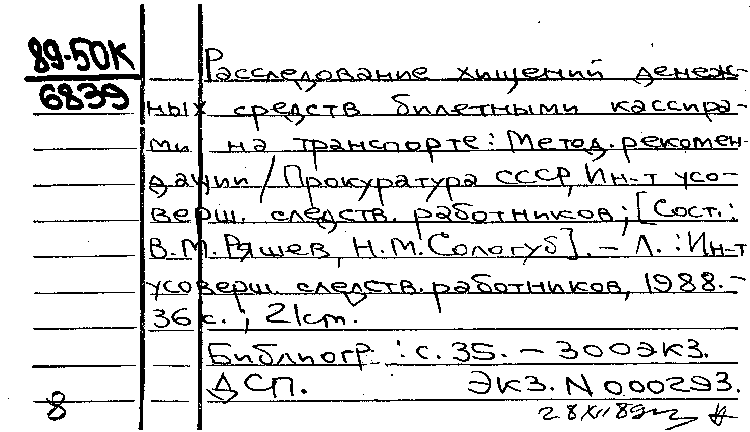 89-50К
6839
Расследование хищений денеж-
ных средств билетными кассира-
ми на транспорте: Метод. рекомен-
дации / Прокуратура СССР, Ин-т усо-
верш. следств. работников; [Сост.:
В.М. Ряшев, Н.М. Сологуб]. – Л. : Ин-т
усоверш. следств. работников, 1988. –
36 с. ; 21 cm.
Библиогр. : с. 35. – 300 экз.
ДСП. Экз. N 000293.
8
28 XII 89